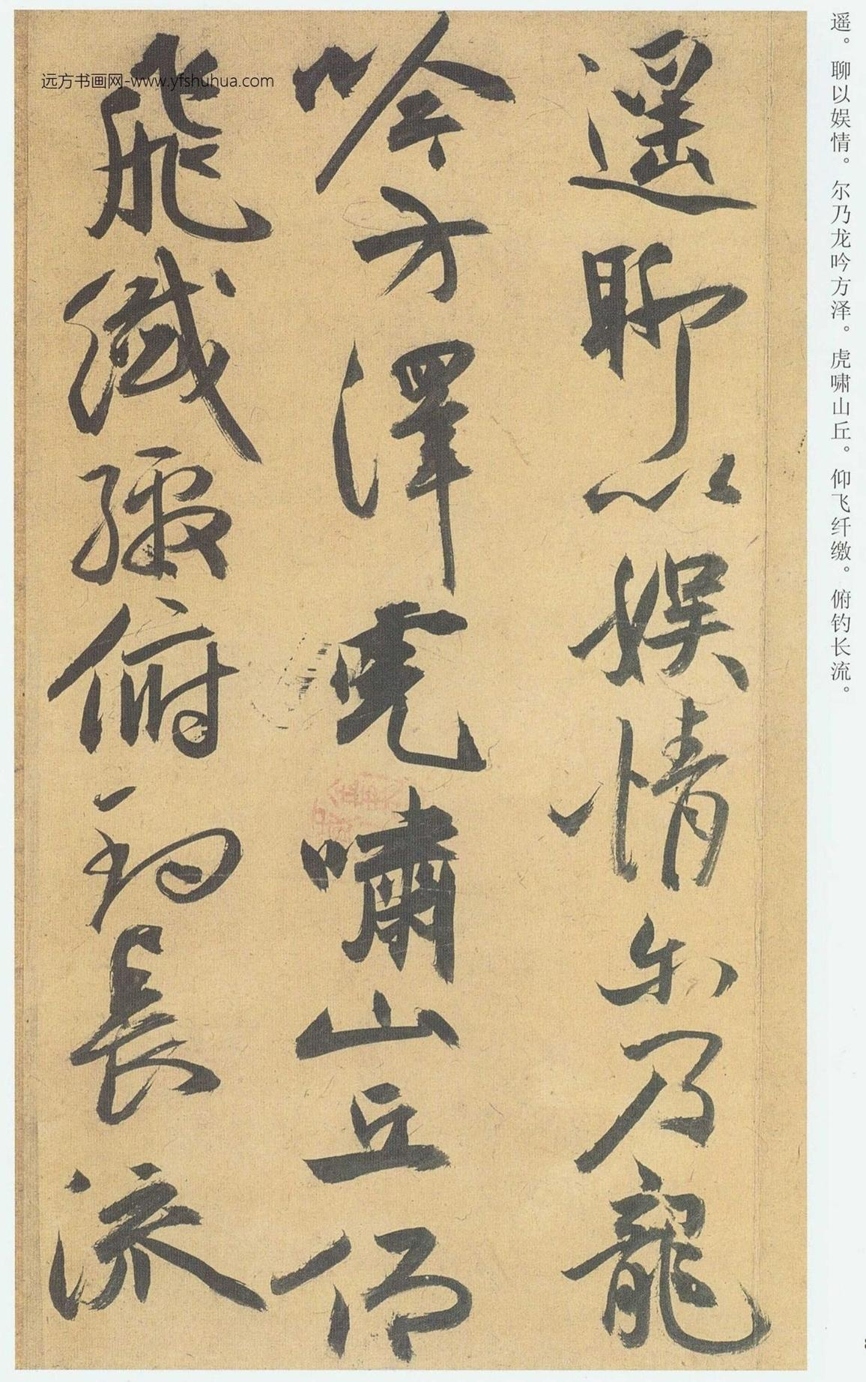 遥。聊以娱情。尔乃龙吟方泽。虎啸山丘。仰飞纤缴。俯钓长流。
遥聊以娱情尔乃龍
吟方澤虎嘯山丘仰
飛纖繳俯钓長流
远方书画网-www.yfshuhua.com